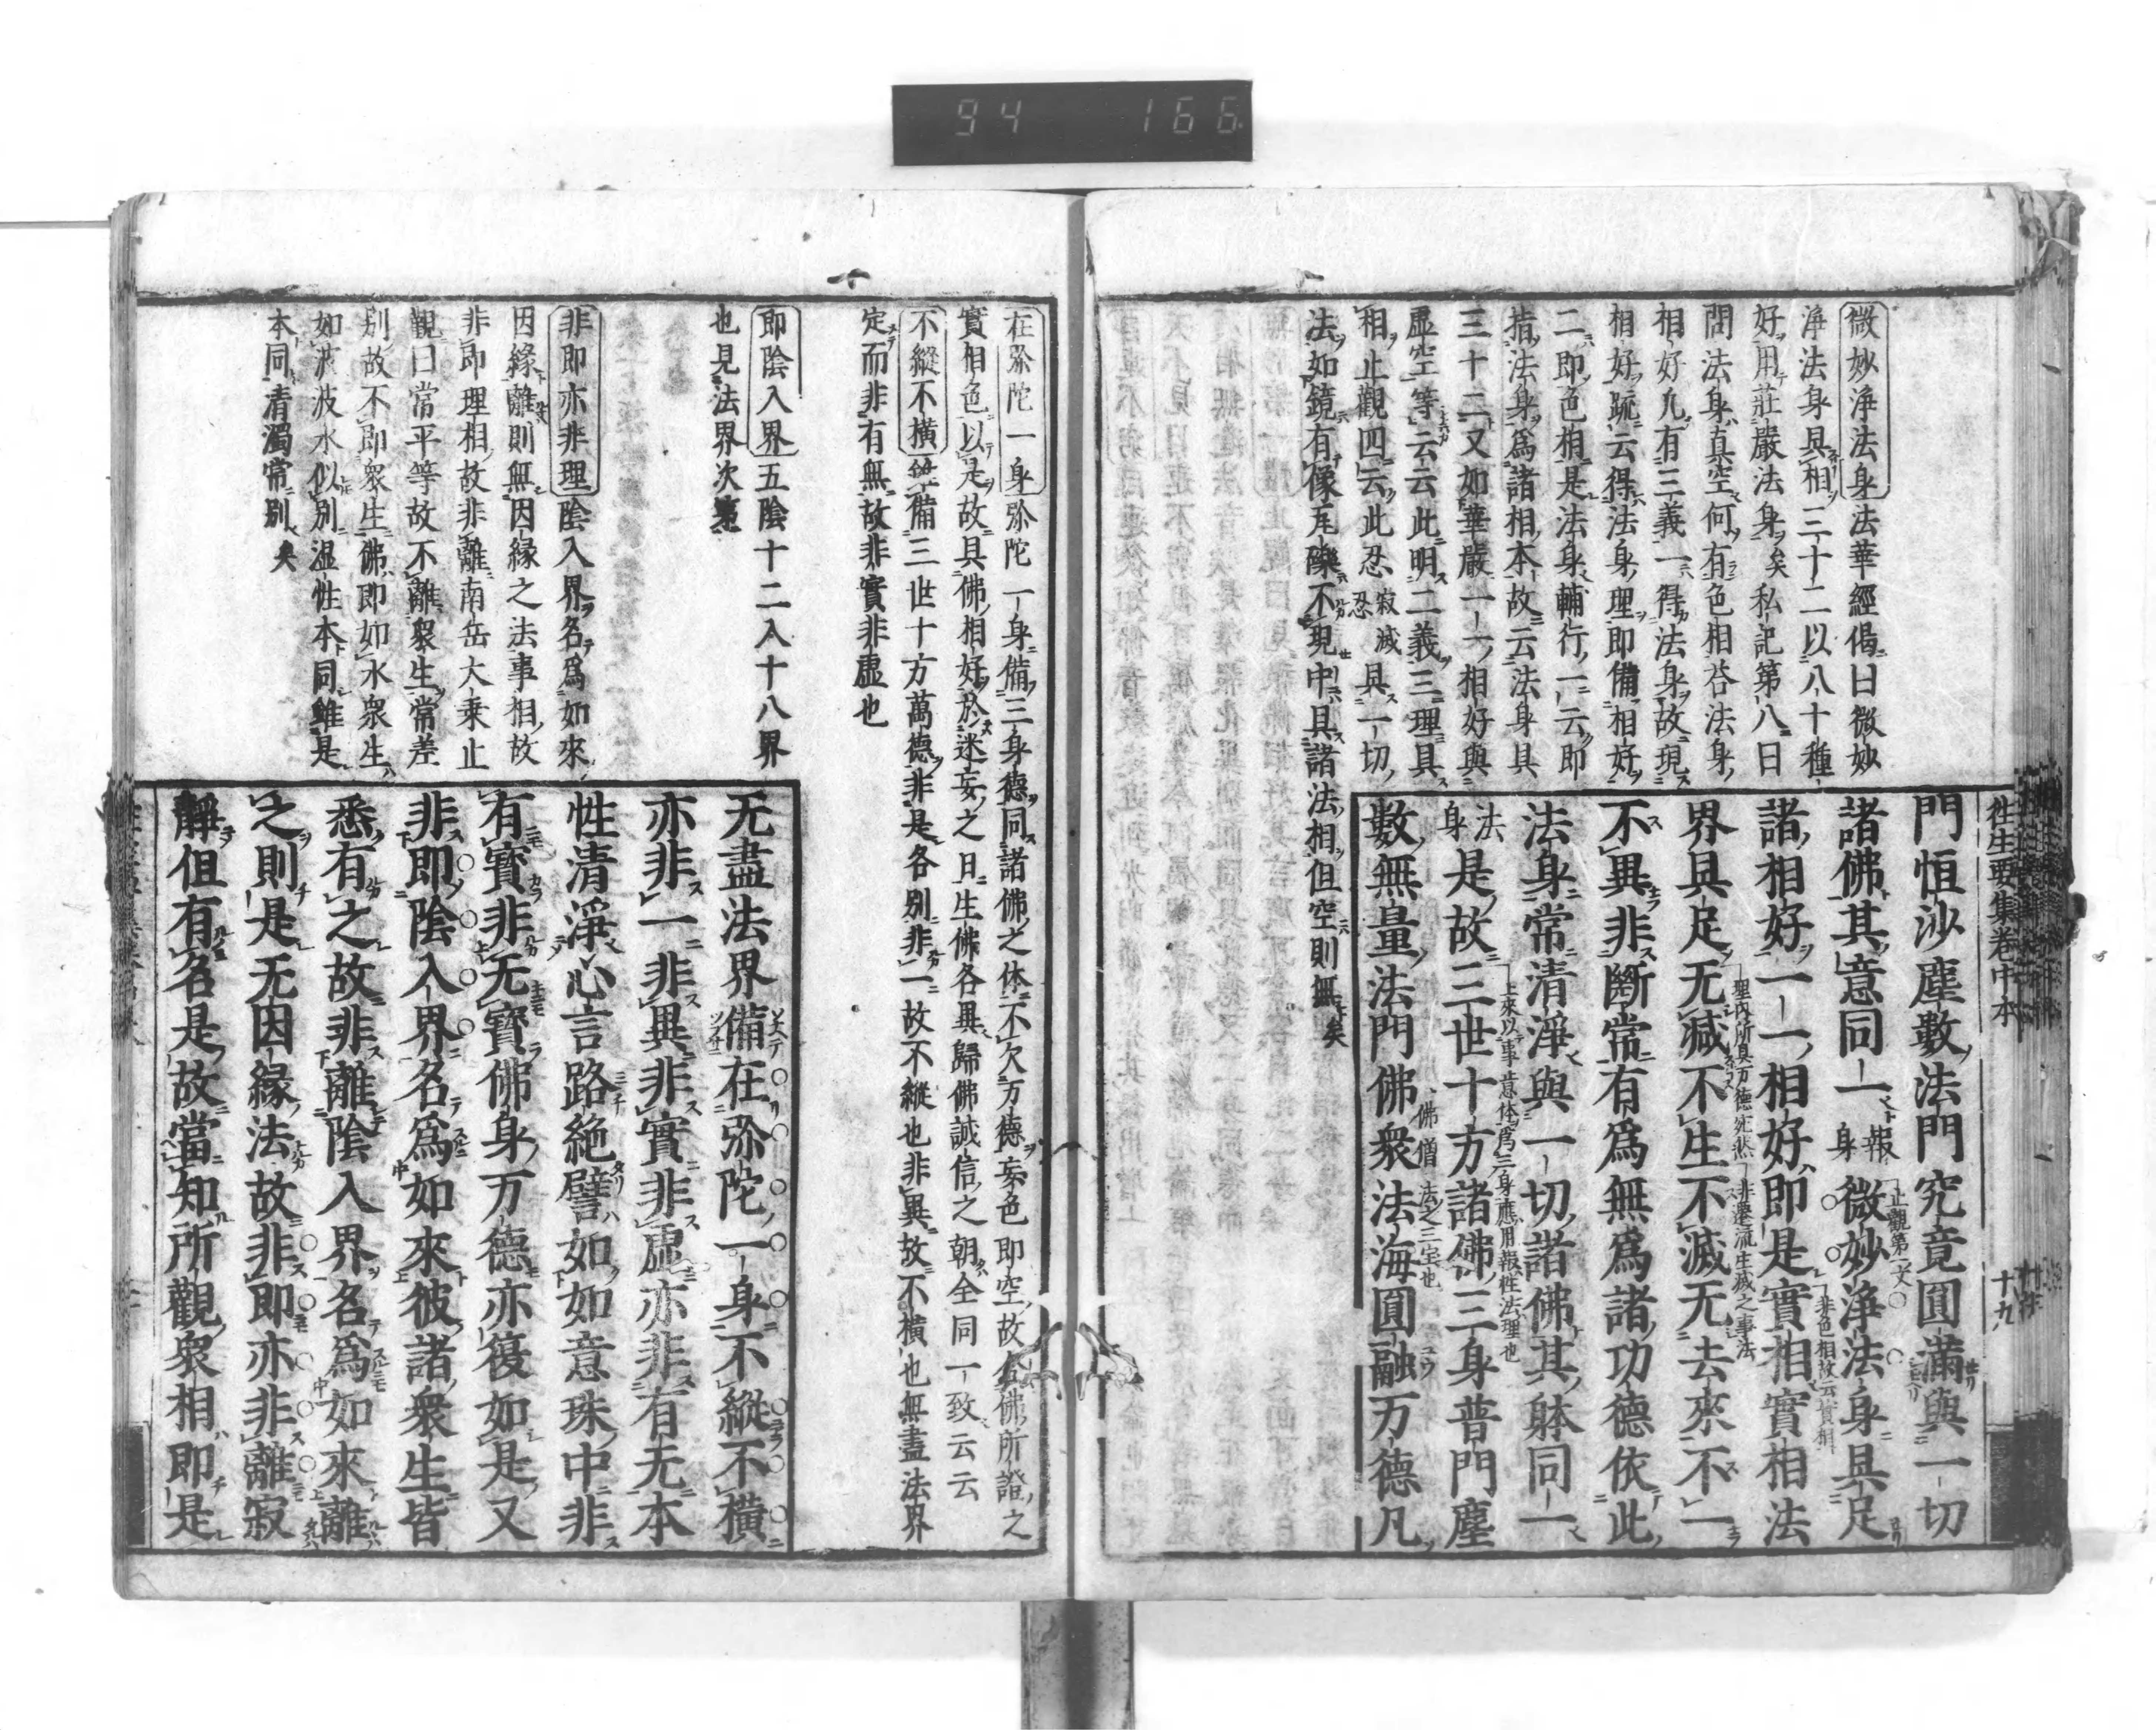 94 166
往生要集卷中本 十九
微妙淨法身法華經偈曰微妙
淨法身具相三十二以八十種
好用莊嚴法身矣私記第八曰
問法身真空何有色相荅法身
相好凡有三義一得法身故現
相好䟽云得法身理即備相好
二即色相是法身輔行一云即
指法身爲諸相本故云法身具
三十二又如華嚴一一相好與
虛空等云云此明二義三理具
相止觀四云此忍寂滅忍具一切
法如鏡有像瓦礫不現中具諸法相但空則無矣
門恒沙塵數法門究竟圓滿與一切
諸佛其意同一報身微妙淨法身具足
諸相好一一相好即是實相實相法
界具足无減不生不滅无去來不一
不異非斷常有爲無爲諸功德依此
法身常清淨與一切諸佛其躰同一
法身是故三世十方諸佛三身普門塵
數無量法門佛衆法海圓融万德凡
止觀第一文
非色相故云實相
理內所具万德宛然
非遷流生滅之事法
上來以事意体爲三身應用報性法理也
佛僧法之三宝也
在弥陀一身弥陀一身備三身德同諸佛之体不欠万德妄色即空故名佛所證之
實相色以是故具佛相好於迷妄之日生佛各異歸佛誠信之朝全同一致云云
不縱不橫雖備三世十方萬德非是各別非一故不縱也非異故不橫也無盡法界
定而非有無故非實非虛也
即陰入界五陰十二入十八界
也見法界次第
非即亦非理陰入界名爲如來
因緣離則無因緣之法事相故
非即理相故非離南岳大乘止
觀曰常平等故不離衆生常差
別故不即衆生佛即如水衆生
如波波水似別湿性本同雖是
本同清濁常別矣
无盡法界備在弥陀一身不縱不橫
亦非一非異非實非虛亦非有无本
性清淨心言路絶譬如如意珠中非
有寶非无寶佛身万德亦復如是又
非即陰入界名爲如來彼諸衆生皆
悉有之故非離陰入界名爲如來離
之則是无因緣法故非即亦非離寂
靜但有名是故當知所觀衆相即是